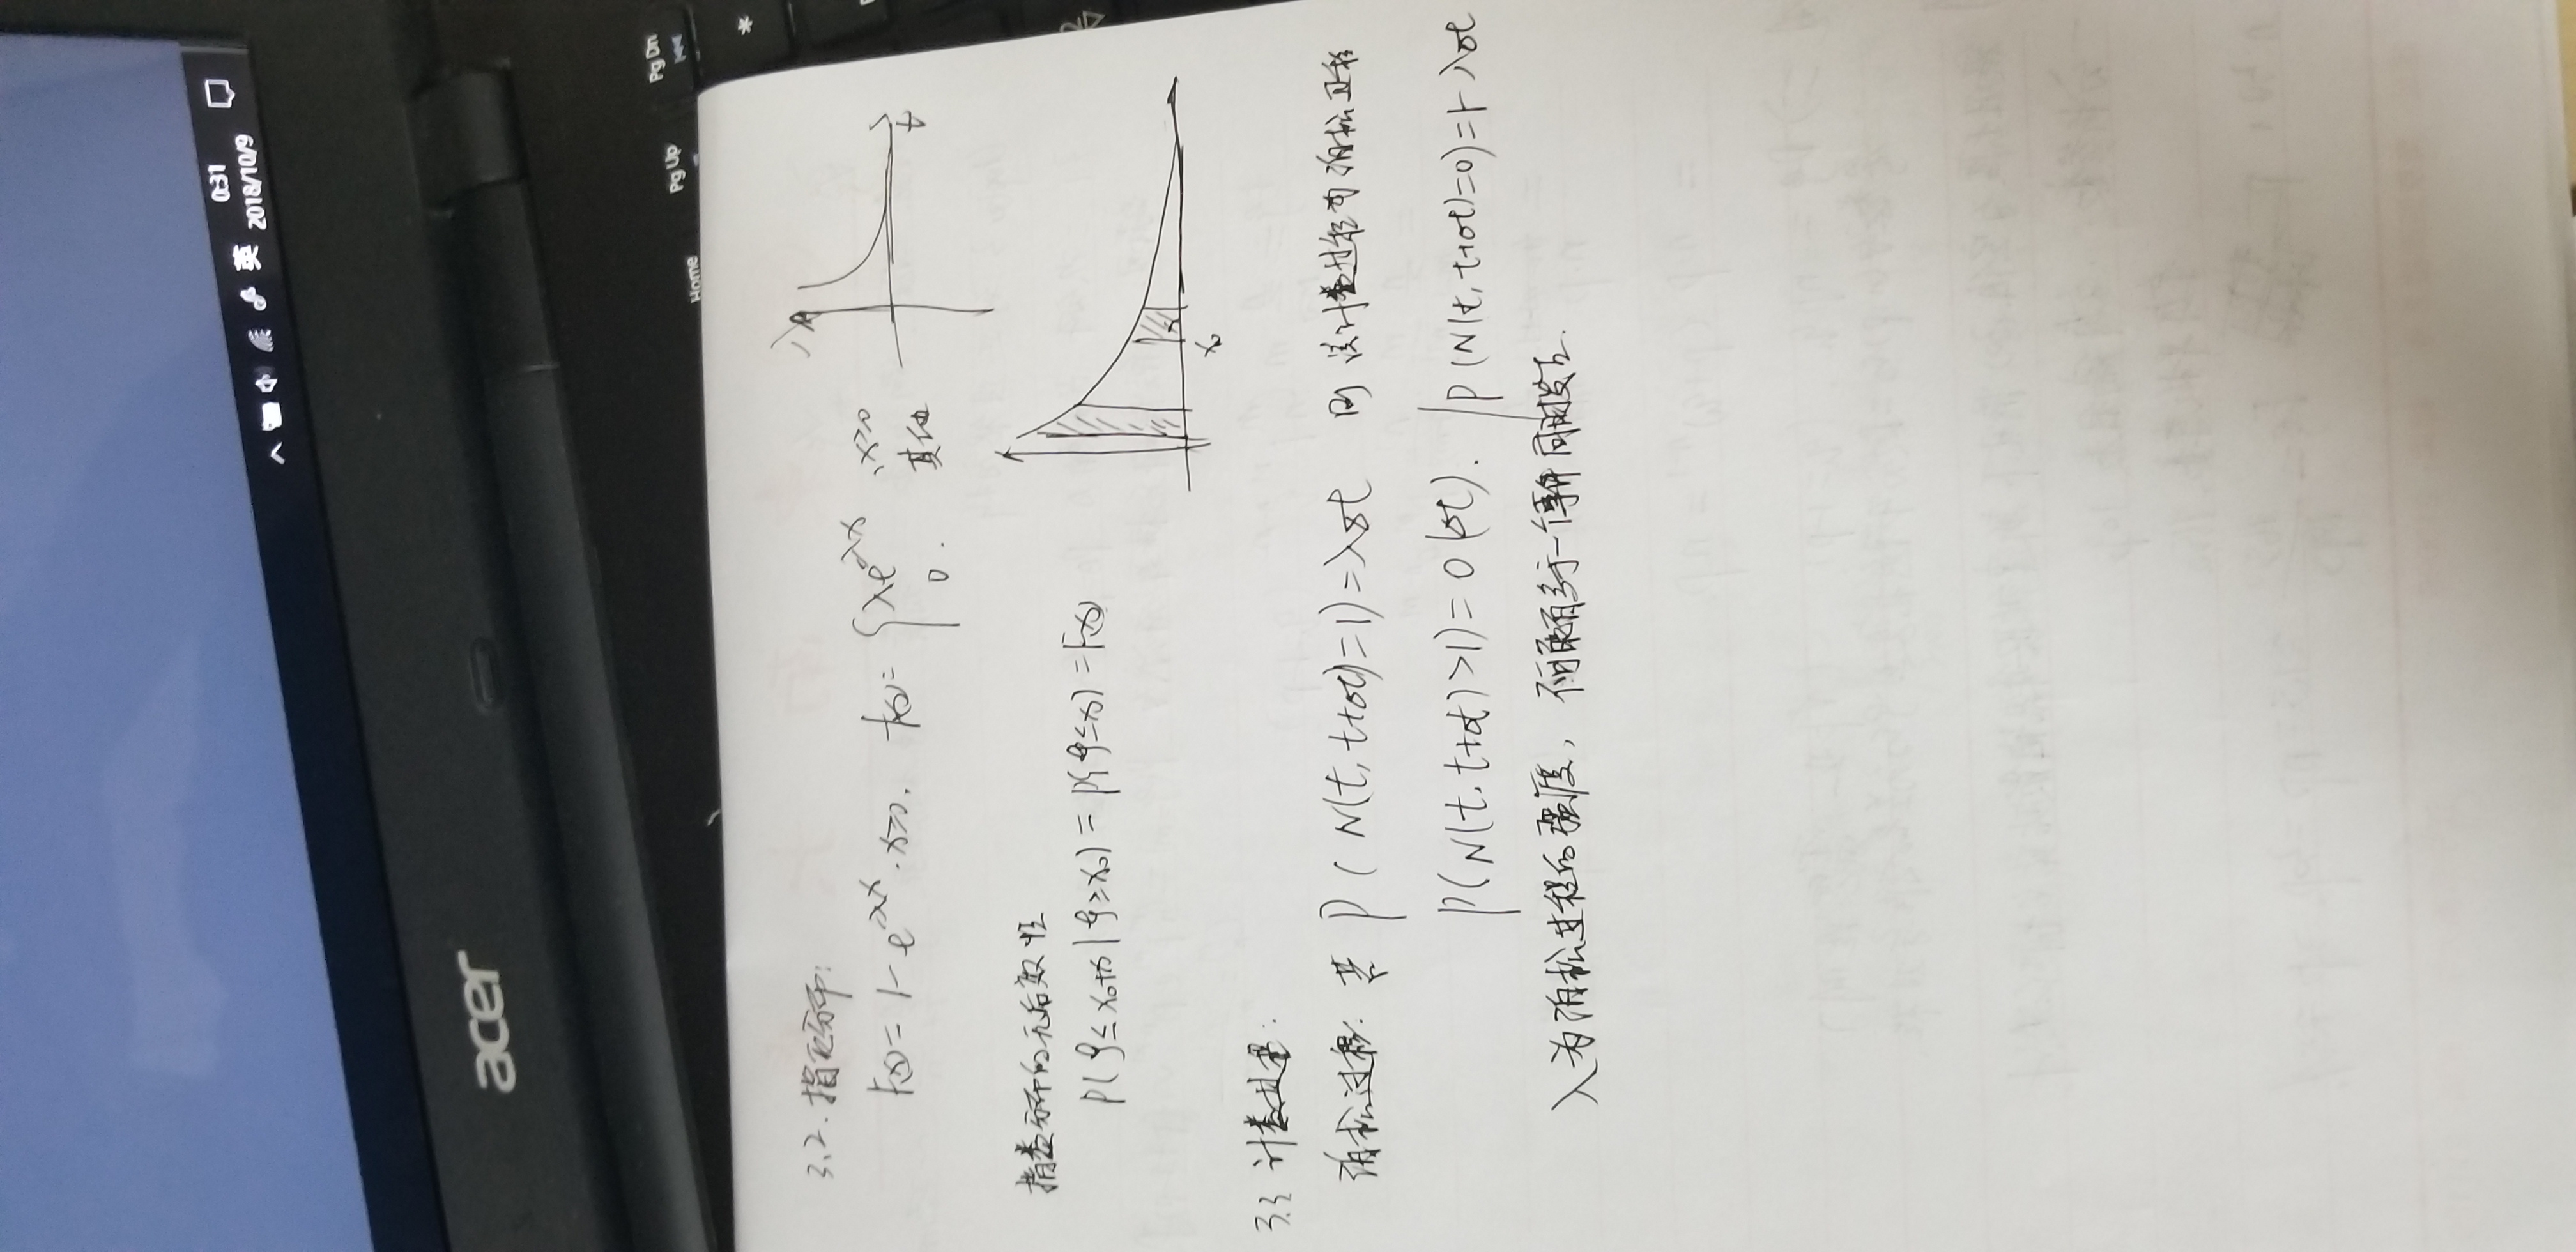 0:31
英
2018/10/9
acer
Pg Dn
Pg Up
Home
*
3.2. 指数分布:
F(x) = 1 - e^{-λx}, x≥0. f(x) = { λe^{-λx}, x≥0
0. 其他
λ
t
指数分布的无后效性
P(ξ≤x₀+x | ξ≥x₀) = P(ξ≤x) = F(x)
x₀
3.3 计数过程:
泊松过程: 若 P(N(t, t+Δt)=1)=λΔt 则该计数过程为泊松过程
P(N(t, t+Δt)>1)=0(Δt). P(N(t, t+Δt)=0)=1-λΔt
λ为泊松过程的强度, 不可能有多于一个事件同时发生.